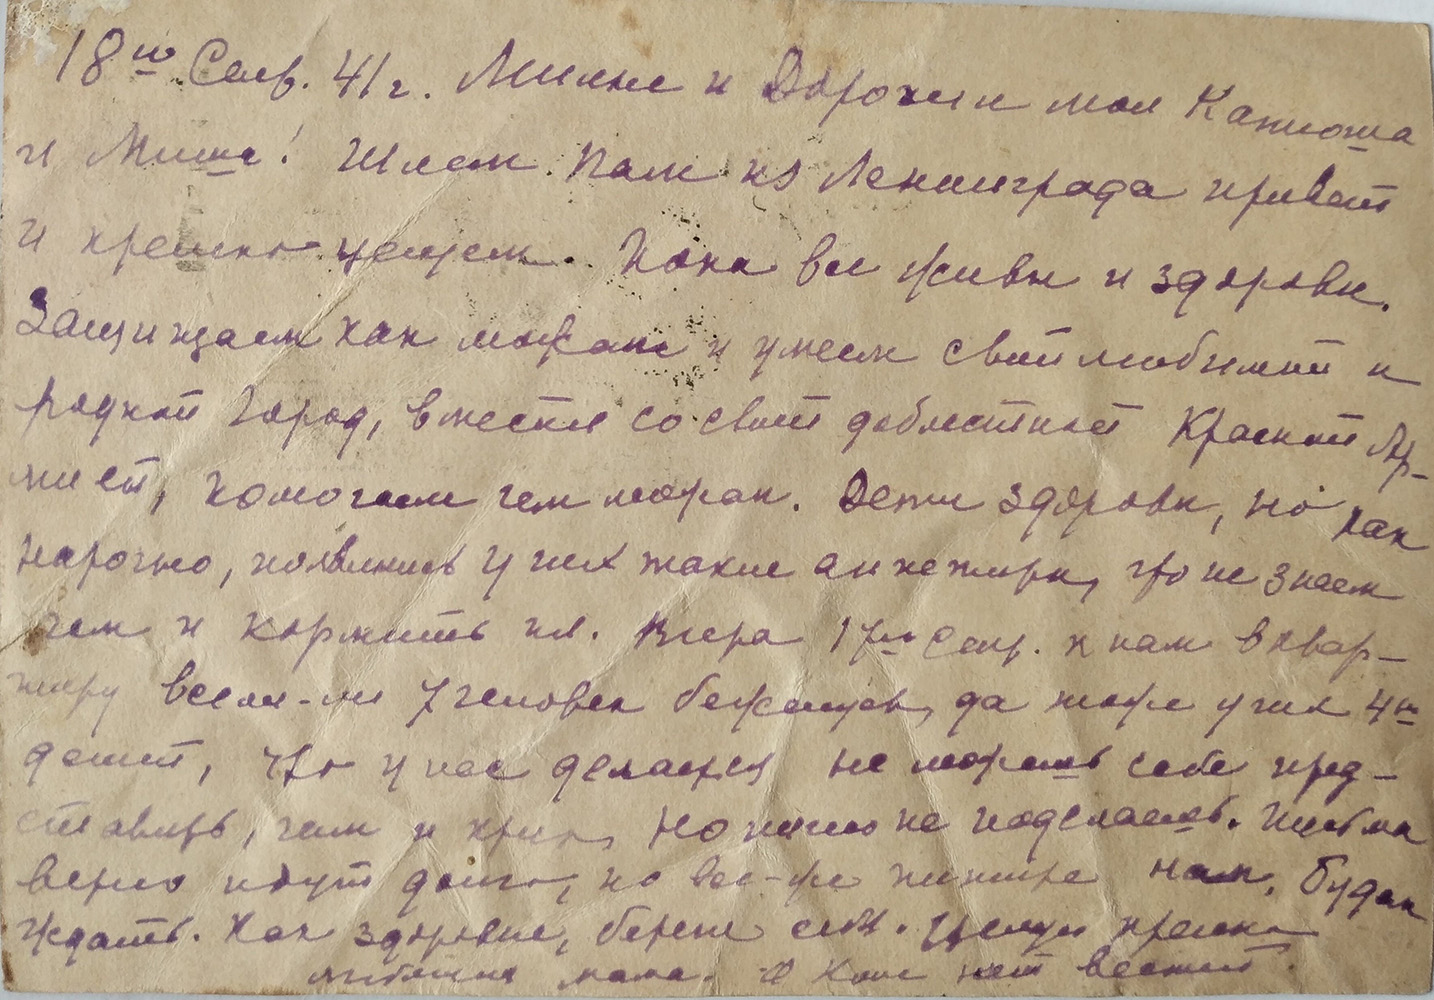 18го Сент. 41 г. Милые и Дорогии мои Катюша
и Миша! Шлем Вам из Ленинграда привет
и крепко целуем. Пока все живы и здоровы.
Защищаем как можем и умеем свой любимый и
родной город, вместе со своей доблестной Красной Ар-
мией, помогаем чем можем. Дети здоровы, но как
нарочно, появились у них такие аппетиты, что не знаем
чем и кормить их. Вчера 17го Сент. к нам в квар-
тиру всели-ли 7 человек беженцев, да тоже у них 4ро
детей, что у нас делается не можешь себе пред-
ставить, гам и крик, но ничего не поделаешь. Письма
верно идут долго, но все-же пишите нам, будем
ждать. Как здоровье, береги себя. Целую крепко
любящая мама. О Коле нет вестей.